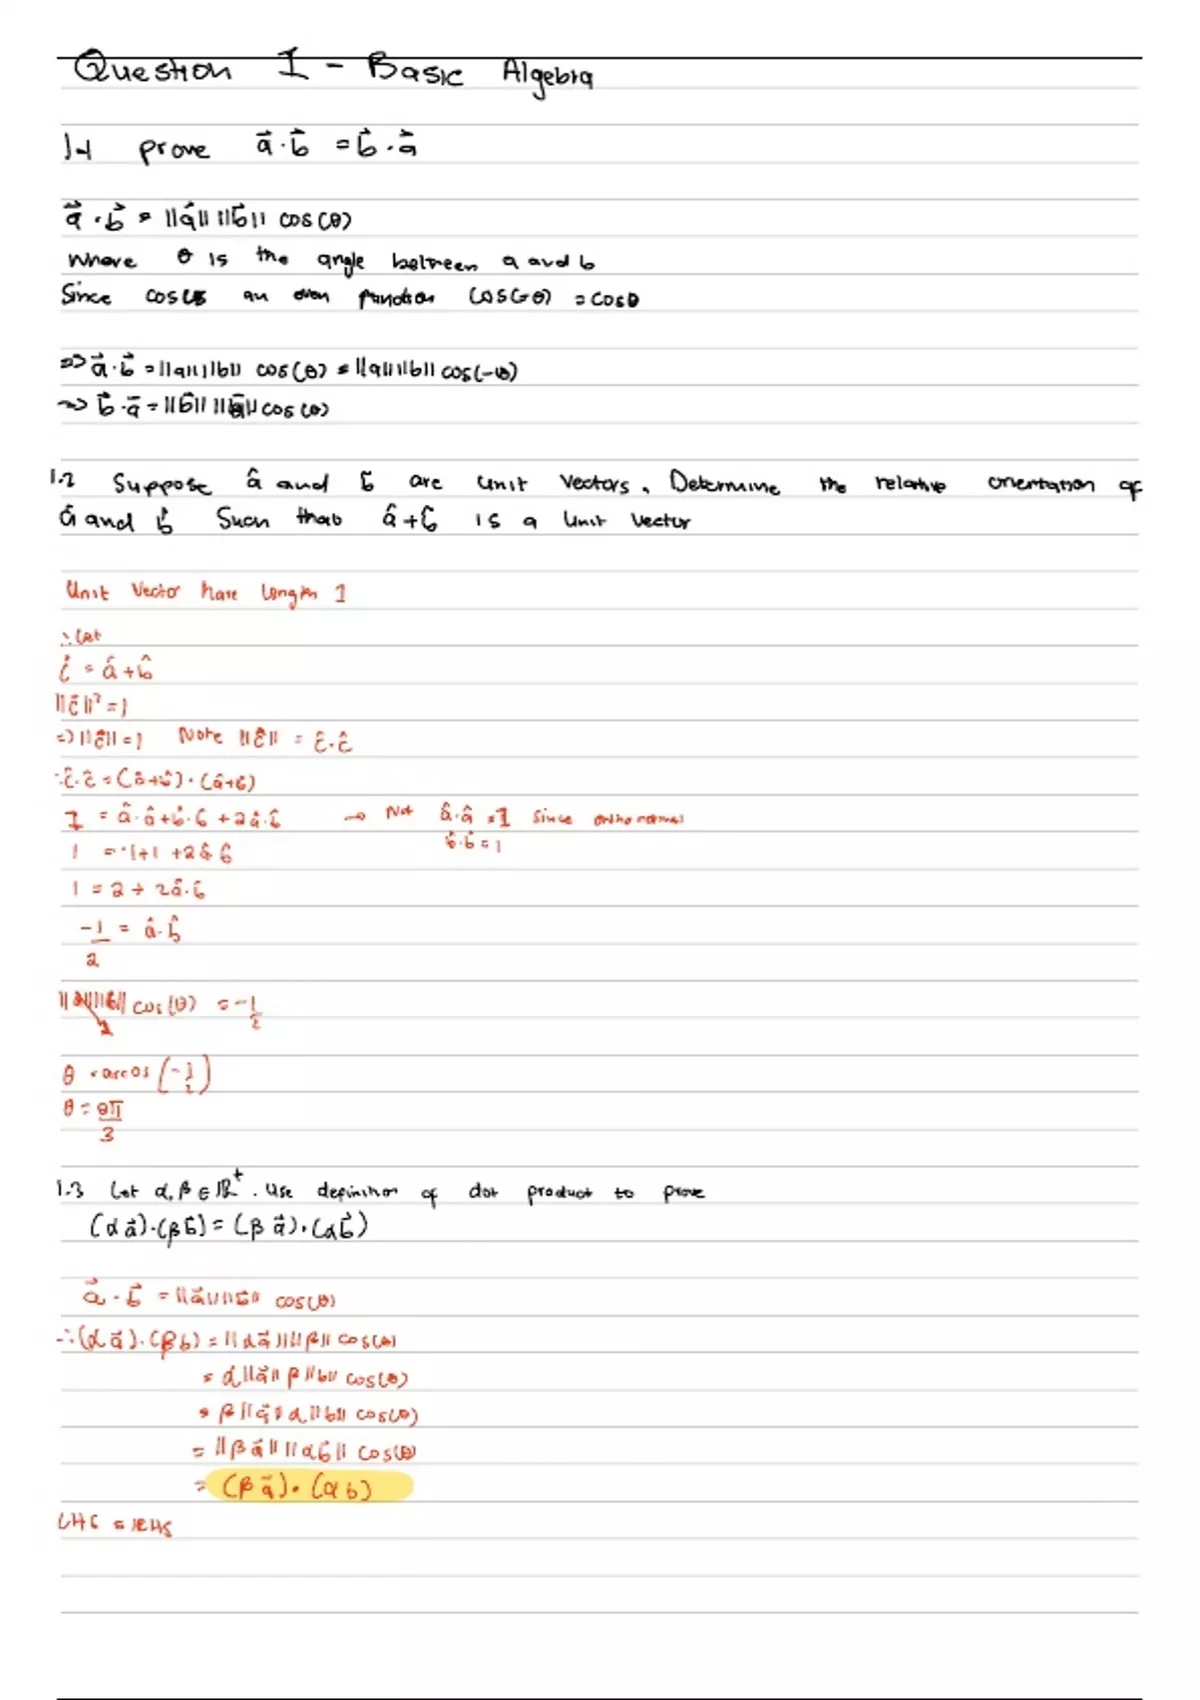 Question 1 - Basic Algebra
1.1 prove a⃗·b⃗ = b⃗·a⃗
a⃗·b⃗ = ||a⃗|| ||b⃗|| cos(θ)
Where θ is the angle between a and b
Since cos is an even function cos(-θ) = cosθ
=> a⃗·b⃗ = ||a|| ||b|| cos(θ) = ||a|| ||b|| cos(-θ)
=> b⃗·a⃗ = ||b⃗|| ||a⃗|| cos(θ)
1.2 Suppose â and b̂ are unit vectors. Determine the relative orientation of
â and b̂ Such that â+b̂ is a Unit vector
Unit Vector have Length 1
∴ Let
ĉ = â + b̂
||ĉ||² = 1
=> ||ĉ|| = 1 Note ||ĉ|| = ĉ·ĉ
∴ ĉ·ĉ = (â+b̂)·(â+b̂)
1 = â·â + b̂·b̂ + 2â·b̂ → Not â·â = 1 Since orthonormal
b̂·b̂ = 1
1 = 1+1 +2â·b̂
1 = 2 + 2â·b̂
-1/2 = â·b̂
||â|| ||b̂|| cos(θ) = -1/2
1
θ = arcos (-1/2)
θ = 2π/3
1.3 Let α, β ∈ ℝ⁺. Use definition of dot product to prove
(αa⃗)·(βb⃗) = (βa⃗)·(αb⃗)
a⃗·b⃗ = ||a⃗|| ||b⃗|| cos(θ)
∴ (αa⃗)·(βb) = ||αa⃗|| ||β|| cos(θ)
= α||a⃗|| β||b|| cos(θ)
= β||a⃗|| α||b|| cos(θ)
= ||βa⃗|| ||αb⃗|| cos(θ)
= (βa⃗)·(αb)
LHS = RHS